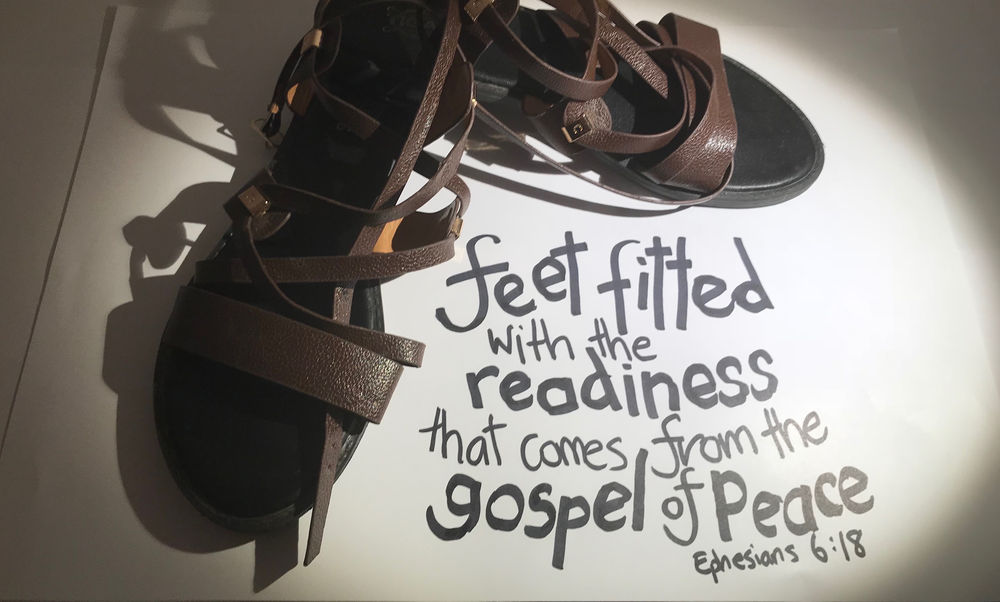 feet fitted
with the
readiness
that comes from the
gospel of Peace
Ephesians 6:18